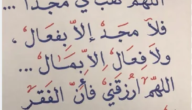 اللّهمّ هب لي مجدًا ...
فلا مجدَ إلاّ بفعال،
ولا فعال إلاّ بمال ...
اللّهمّ ارزقني فإنّ الفقر